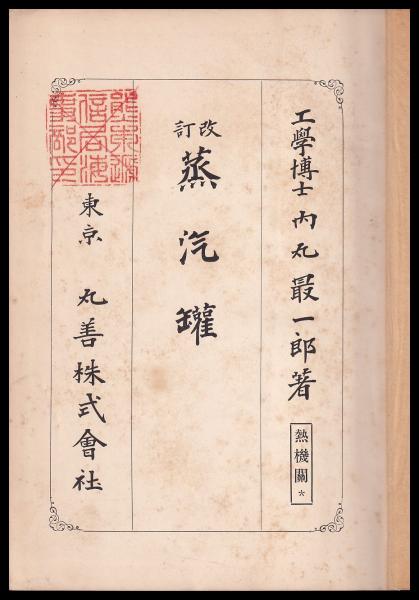 工學博士 內丸最一郎著
熱機關 *
改訂
蒸汽罐
東京 丸善株式會社